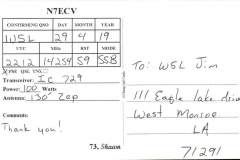 N7ECV
CONFIRMING QSO DAY MONTH YEAR
W5L 29 4 19
UTC MHz RST MODE
2212 14.259 59 SSB
PSE QSL TNX
Transceiver: Ic 729
Power: 100 Watts
Antenna: 130' Zep
Comments:
Thank you!
73, Shawn
To: W5L Jim
111 Eagle lake drive
West Monroe
LA
71291